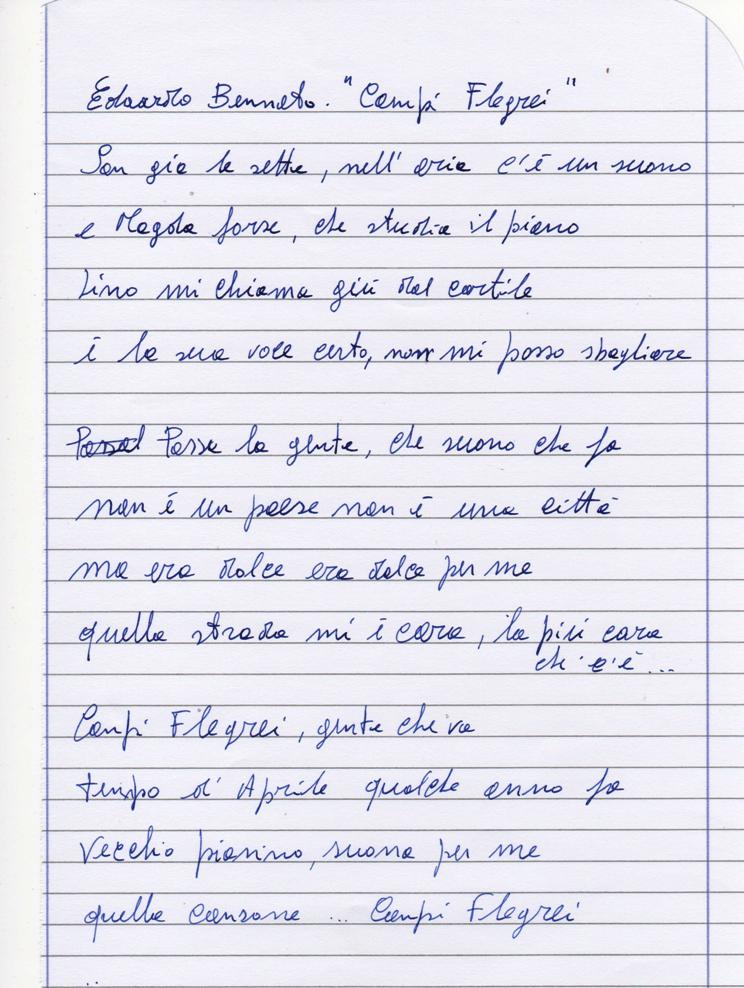 Edoardo Bennato. "Campi Flegrei"
Son già le sette, nell'aria c'è un suono
è Magda forse, che studia il piano
Lino mi chiama giù dal cortile
è la sua voce certo, non mi posso sbagliare
Passa la gente, che suono che fa
non è un paese non è una città
ma era dolce era dolce per me
quella strada mi è cara, la più cara
che c'è...
Campi Flegrei, gente che va
tempo d'Aprile qualche anno fa
Vecchio pianino, suona per me
quella canzone ... Campi Flegrei